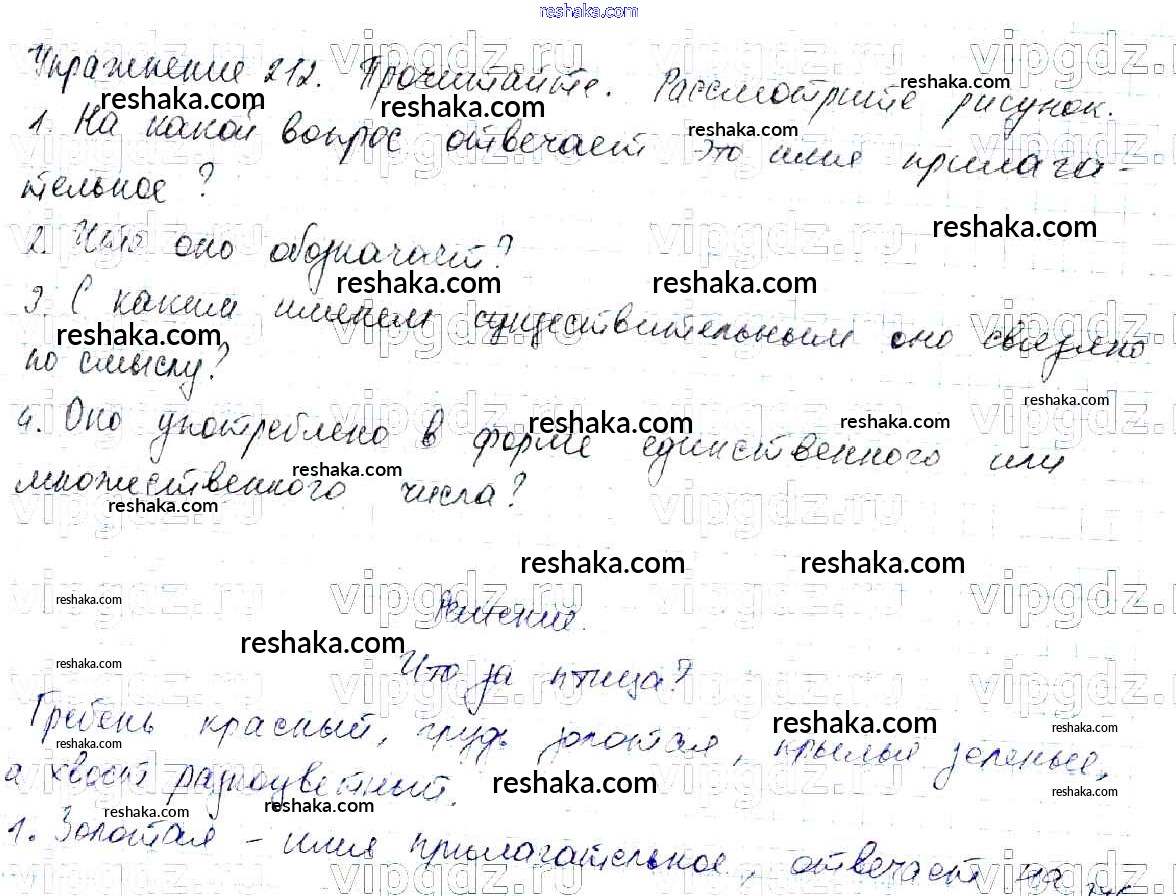 reshaka.com
Упражнение 212. Прочитайте. Рассмотрите рисунок.
1. На какой вопрос отвечает это имя прилага-
тельное?
2. Что оно обозначает?
3. С каким именем существительным оно связано
по смыслу?
4. Оно употреблено в форме единственного или
множественного числа?
Решение.
Что за птица?
Гребень красный, грудь золотая, крылья зеленые,
а хвост разноцветный.
1. Золотая - имя прилагательное, отвечает на